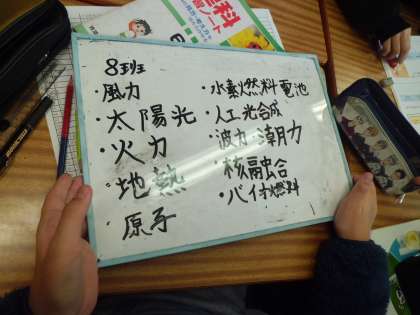 8班
・風力
・太陽光
・火力
・地熱
原子
・水素燃料電池
・人工光合成
・波力 潮力
・核融合
・バイオ燃料